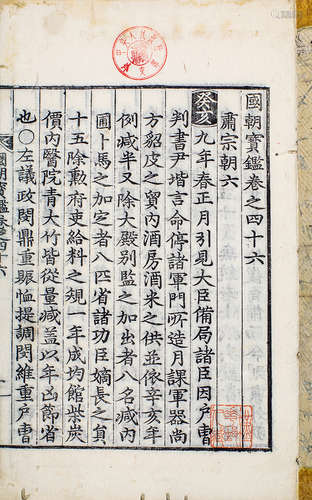 國朝寶鑑卷之四十六
肅宗朝六
癸亥九年春正月引見大臣備局諸臣因戶曹
判書尹堦言命停諸軍門所造月課軍器尚
方貂皮之貿內酒房酒米之供並依辛亥年
例减半又除大殿別監之加出者八名减內
圃卜馬之加定者八匹省諸功臣嫡長之負
十五除勳府吏給料之規一年成均館柴炭
價內醫院青大竹皆從量减盖以年凶節省
也○左議政閔鼎重賑恤提調閔維重戶曹
國朝寶鑑卷四十六
一